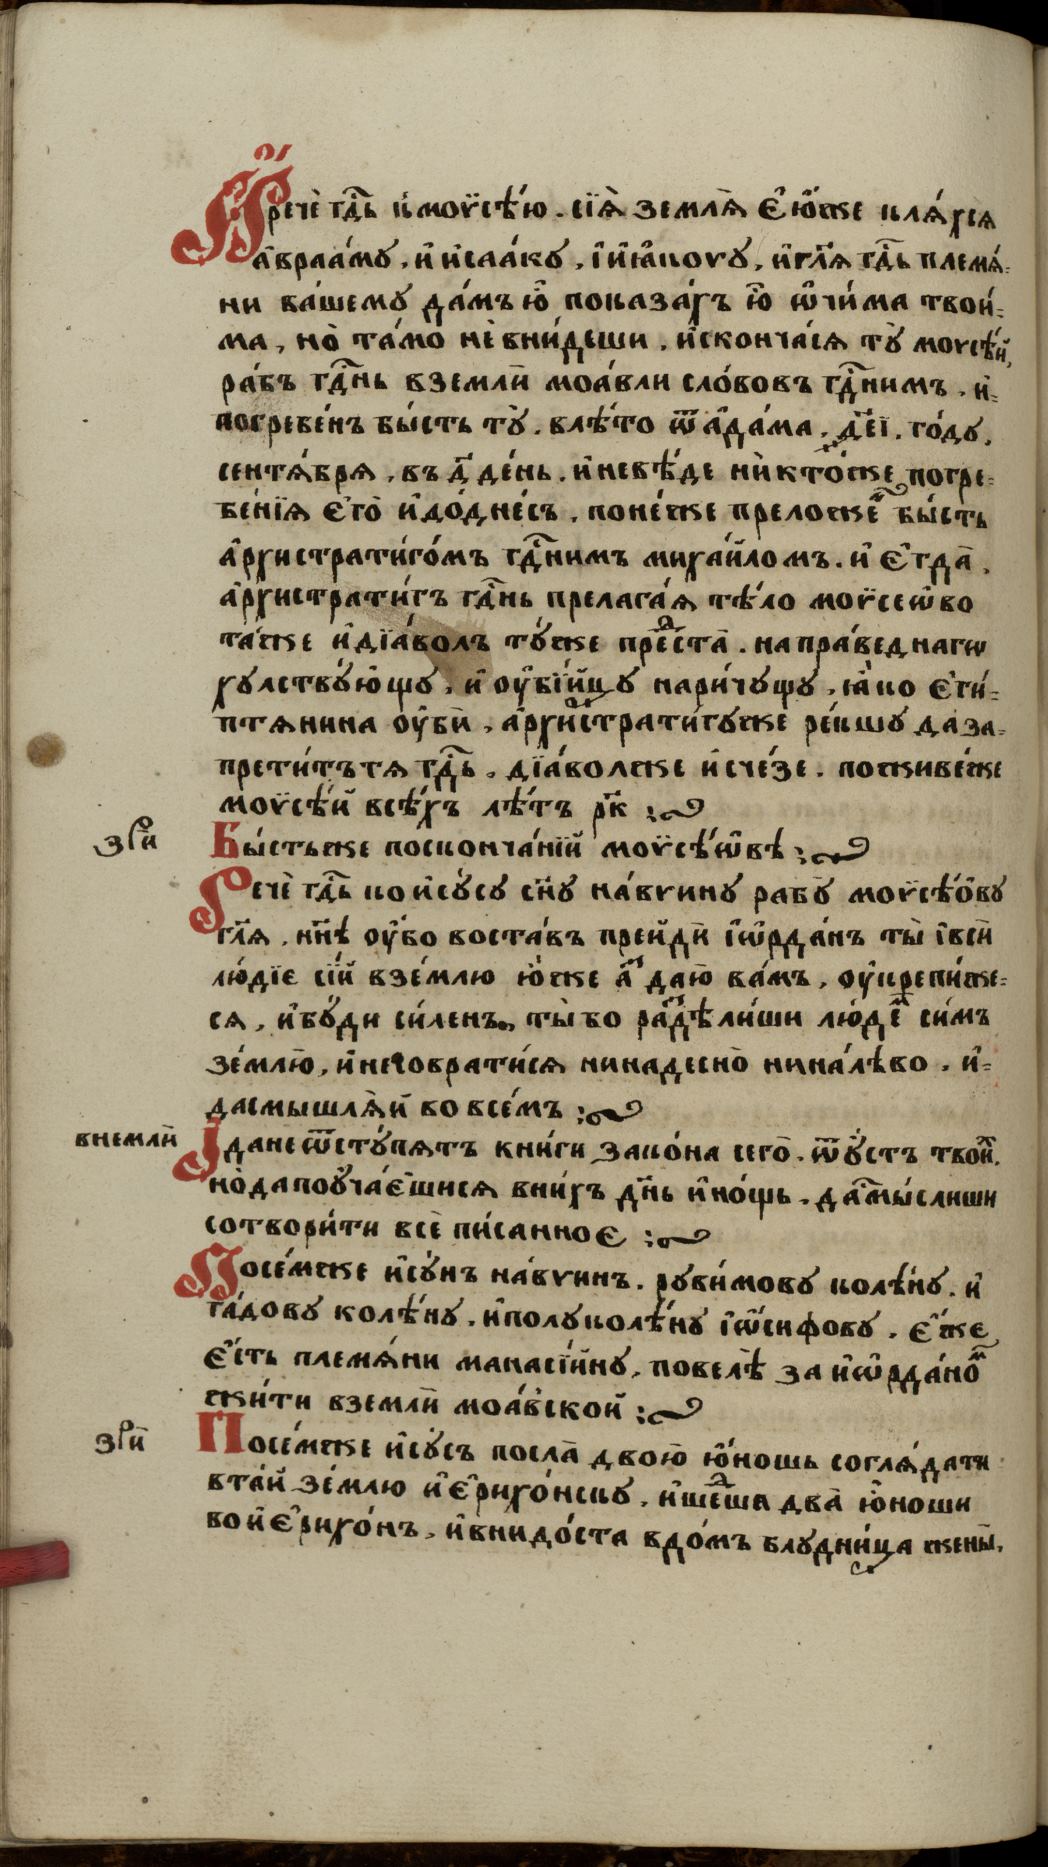 И҆речѐ гдⷭ҇ь к моѵсѣ́ю . сїѧ̀ землѧ̀ є҆ю́же клѧ́хсѧ
а҆враа́мꙋ , и҆ и҆саа́кꙋ , і҆ и҆а́ковꙋ , и҆ гл҃ѧ гдⷭ҇ь племѧ́-
ни ва́шемꙋ да́мъ ю҆̀ показа́хъ ю҆̀ ѡ҆чи́ма твои́-
ма , но̀ та́мо не вни́деши . и҆скончасѧ тꙋ̀ моѵсѣ́й ,
ра́бъ гдⷭ҇нь в землѝ моа́вли сло́вовъ гдⷭ҇нимъ . и҆-
погребе́нъ бы́сть тꙋ̀ . в лѣ́то ѿ а҆да́ма , д҃еі . го́дꙋ .
сентѧ́брѧ , въ д҃ де́нь . и҆ невѣ́де никто́же погре-
бе́нїѧ є҆го̀ и҆ до́дне́сь . поне́же преложе́ бы́сть
а҆рхистрати́гомъ гдⷭ҇нимъ миха́йломъ . и҆ є҆гда̀ .
а҆рхистрати́гъ гдⷭ҇нь прелага́ѧ тѣ́ло моѵсеѡ҆во
та́же и҆ дїа́волъ тꙋ́же предста̀ . на пра́веднаго
хꙋлствꙋ́ющꙋ , и҆ ᲂу҆бі́йцꙋ нари́чꙋщꙋ , ꙗ҆́ко є҆ги́-
птѧнина ᲂу҆бѝ , а҆рхистрати́гꙋже ре́кшꙋ да за-
прети́тъ тѧ гдⷭ҇ь . дїа́волже и҆счезе . поживе́же
моѵсѣ́й всѣ́хъ лѣ́тъ р҃к :~
зрѝ
Бы́стьже поскончанїй моѵсѣ́ѡве :~
Речѐ гдⷭ҇ь ко и҆сꙋ́сꙋ сн҃ꙋ на́вѵинꙋ рабꙋ̀ моѵсѣ́овꙋ
гл҃ѧ . нн҃ѣ ᲂу҆́бо воста́въ прейдѝ і҆ѡ҆рда́нъ ты̀ і҆ всѝ
лю́дїе сі́й в зе́млю ю́же а҆́з даю̀ ва́мъ , ᲂу҆крепи́же-
сѧ , и҆ бꙋ́ди си́ленъ . ты́ бо раздѣли́ши лю́дем си́мъ
зе́млю , и҆ неѡбрати́сѧ ни на десно̀ ни на́лѣво . и҆-
да смышлѧ́й во всѣ́мъ :~
внемлѝ
І҆ да не ѿстꙋ́пѧтъ кни́ги зако́на сего̀ . ѿ ᲂу҆́стъ твои́х
но̀ да поᲂуча́є҆шисѧ в ни́хъ дн҃ь и҆ но́щь . да мы́слиши
сотвори́ти всѐ пи́санное :~
По се́мже и҆сꙋ́нъ на́вѵинъ . рꙋви́мовꙋ колѣ́нꙋ . и҆
га́довꙋ колѣ́нꙋ . и҆ полꙋколѣ́нꙋ і҆ѡ́сифовꙋ . є҆́же
є҆́сть племѧ́ни манасі́йнꙋ , повелѣ̀ за и҆ѡ҆рда́ном
жи́ти в землѝ моа́вской :~
зрѝ
По се́мже и҆сꙋ́съ посла̀ двою̀ ю҆́ношь соглѧ́дати
втай зе́млю и҆ є҆рихо́нскꙋ . и҆ шедша два̀ ю҆́ноши
во и҆ є҆рихо́нъ . и҆ внидо́ста в до́мъ блꙋдни́ца жены̀ ,